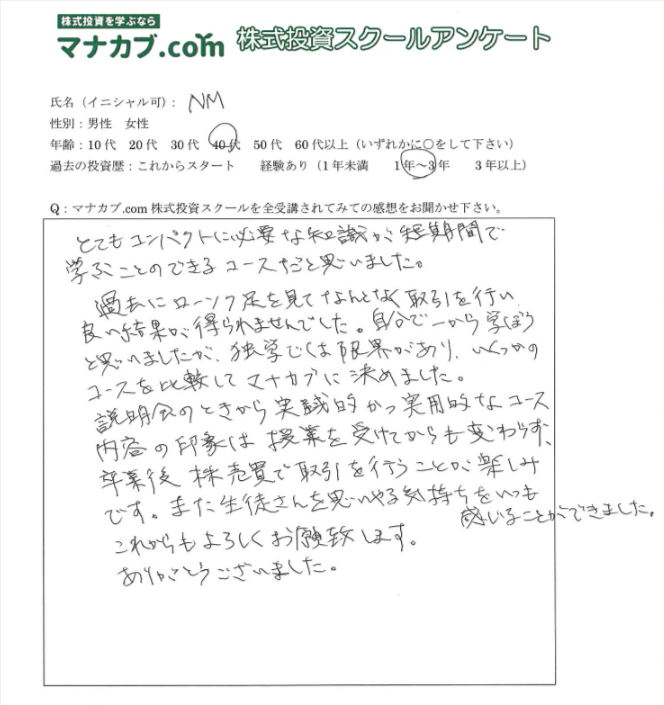 株式投資を学ぶなら
マナカブ.com 株式投資スクールアンケート
氏名（イニシャル可）： NM
性別：男性　女性
年齢：10代　20代　30代　40代　50代　60代以上（いずれかに○をして下さい）
過去の投資歴：これからスタート　経験あり（1年未満　1年～3年　3年以上）
Q：マナカブ.com 株式投資スクールを全受講されてみての感想をお聞かせ下さい。
とてもコンパクトに必要な知識が短期間で
学ぶことのできるコースだと思いました。
過去にローソク足を見てなんとなく取引を行い
良い結果が得られませんでした。自分で一から学ぼう
と思いましたが、独学では限界があり、いくつかの
コースを比較してマナカブに決めました。
説明会のときから実践的かつ実用的なコース
内容の印象は授業を受けてからも変わらず、
卒業後株売買で取引を行うことが楽しみ
です。また生徒さんを思いやる気持ちをいつも
感じることができました。
これからもよろしくお願致します。
ありがとうございました。